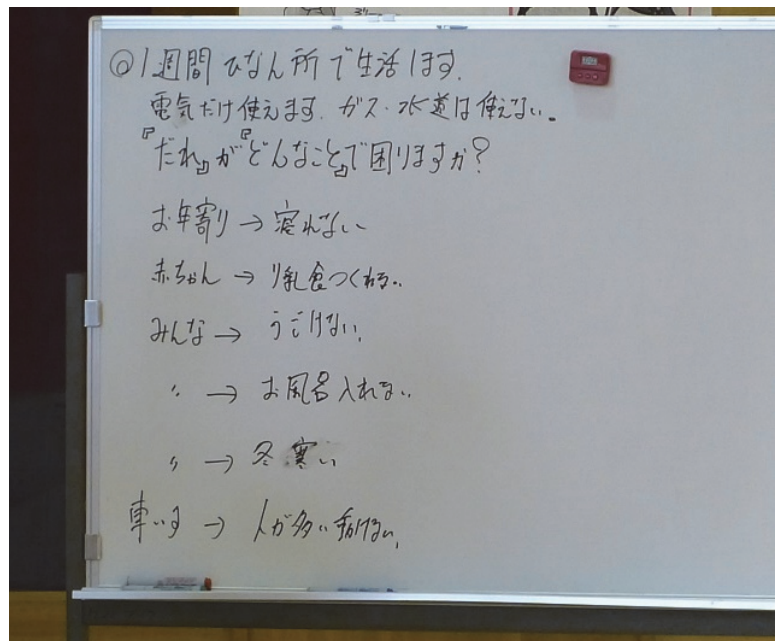 ◎1週間 ひなん所で生活します.
電気だけ使えます. ガス・水道は使えない。
『だれ』が『どんなこと』で困りますか?
お年寄り → 寝れない
赤ちゃん → り乳食つくれない.
みんな → うごけない.
〃 → お風呂入れない.
〃 → 冬寒い
車いす → 人が多い動けない.